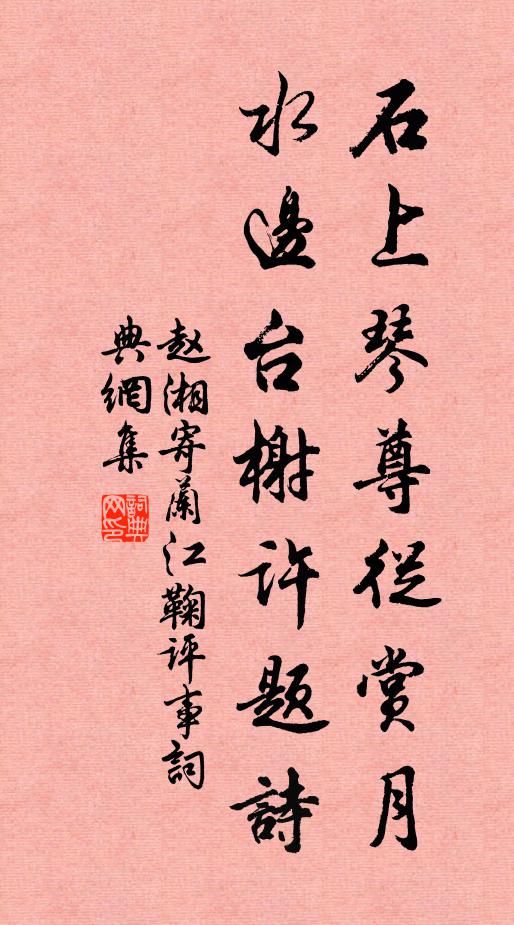 石上琴尊從賞月
水邊台榭許題詩
赵湘寄蘭江鞠评事詞
典網集
詞典网印